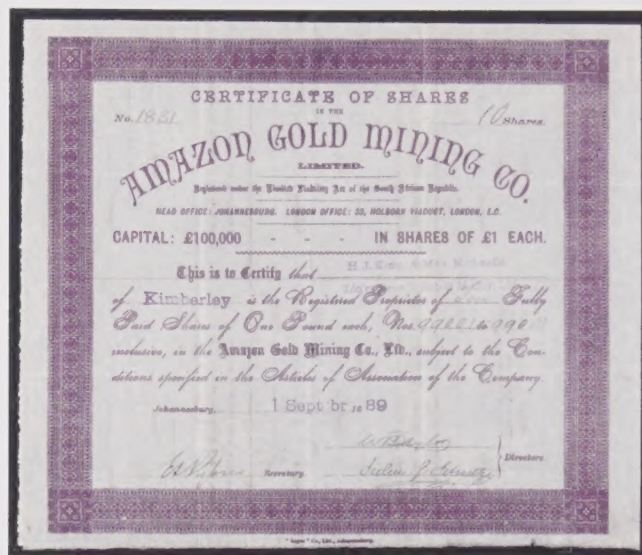 CERTIFICATE OF SHARES
IN THE
No. 1831 10 Shares.
AMAZON GOLD MINING CO.
LIMITED.
Registered under the Limited Liability Act of the South African Republic.
HEAD OFFICE: JOHANNESBURG. LONDON OFFICE: 33, HOLBORN VIADUCT, LONDON, E.C.
CAPITAL: £100,000 - - - IN SHARES OF £1 EACH.
This is to Certify that
of Kimberley is the Registered Proprietor of Fully
Paid Shares of One Pound each, Nos. to
inclusive, in the Amazon Gold Mining Co., Ltd., subject to the Con-
ditions specified in the Articles of Association of the Company.
Johannesburg, 1 Septbr 1889
Directors.
Secretary.
"Argus" Co., Ltd., Johannesburg.